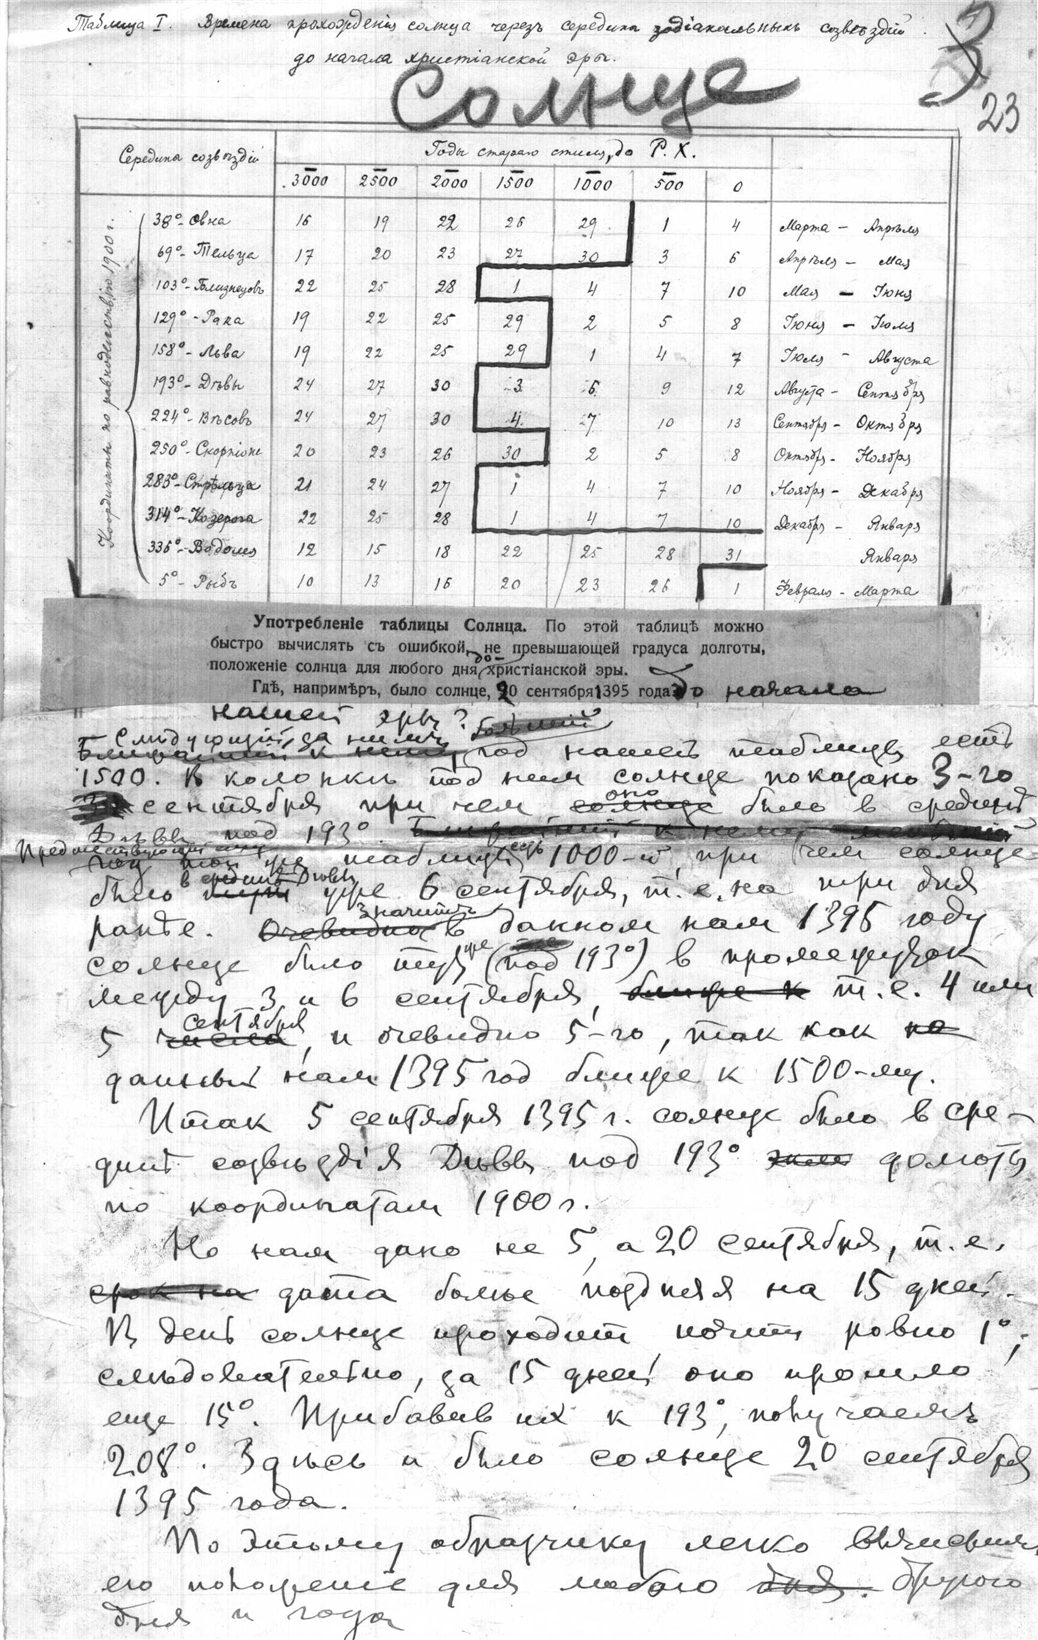 Таблица I. Времена прохожденія солнца черезъ середины зодіакальныхъ созвѣздій
до начала христіанской эры.
Солнце
3
23
Середины созвѣздій
Годы стараго стиля, до Р. Х.
3000 2500 2000 1500 1000 500 0
Координаты по равноденствію 1900 г.
38° - Овна 16 19 22 26 29 1 4 Марта - Апрѣля
69° - Тельца 17 20 23 27 30 3 6 Апрѣля - Мая
103° - Близнецовъ 22 25 28 1 4 7 10 Мая - Іюня
129° - Рака 19 22 25 29 2 5 8 Іюня - Іюля
158° - Льва 19 22 25 29 1 4 7 Іюля - Августа
193° - Дѣвы 24 27 30 3 6 9 12 Августа - Сентября
224° - Вѣсовъ 24 27 30 4 7 10 13 Сентября - Октября
250° - Скорпіона 20 23 26 30 2 5 8 Октября - Ноября
283° - Стрѣльца 21 24 27 1 4 7 10 Ноября - Декабря
314° - Козерога 22 25 28 1 4 7 10 Декабря - Января
336° - Водолея 12 15 18 22 25 28 31 Января
5° - Рыбъ 10 13 16 20 23 26 1 Февраля - Марта
Употребленіе таблицы Солнца. По этой таблицѣ можно
быстро вычислять съ ошибкой, не превышающей градуса долготы,
положеніе солнца для любого дня до-христіанской эры.
Гдѣ, напримѣръ, было солнце, 20 сентября 1395 года до начала
нашей эры?
Слѣдующій за нимъ
Ближайшій к нему год нашей таблицы есть
1500. В колонкѣ под ним солнце показано 3-го
сентября при чем солнце оно было в срединѣ
Дѣвы под 193° Ближайшій к нему
Предшествующій ему
год той же таблицы есть 1000-й, при чем солнце
в срединѣ Дѣвы
было уже 6 сентября, т.е. на три дня
ранѣе. Очевидно значитъ в данном нам 1395 году
солнце было тут же (под 193°) в промежуток
между 3 и 6 сентября, ближе к т.е. 4 или
5 числа сентября, и очевидно 5-го, так как
данный нам 1395 год ближе к 1500-му.
Итак 5 сентября 1395 г. солнце было в сре-
динѣ созвѣздія Дѣвы под 193° долготы
по координатам 1900 г.
Но нам дано не 5, а 20 сентября, т.е.
срок на дата болѣе поздняя на 15 дней.
В день солнце проходит почти ровно 1°;
слѣдовательно, за 15 дней оно прошло
еще 15°. Прибавив их к 193°, получаемъ
208°. Здѣсь и было солнце 20 сентября
1395 года.
По этому образчику легко вычислить
его положеніе для любого дня. другого
дня и года